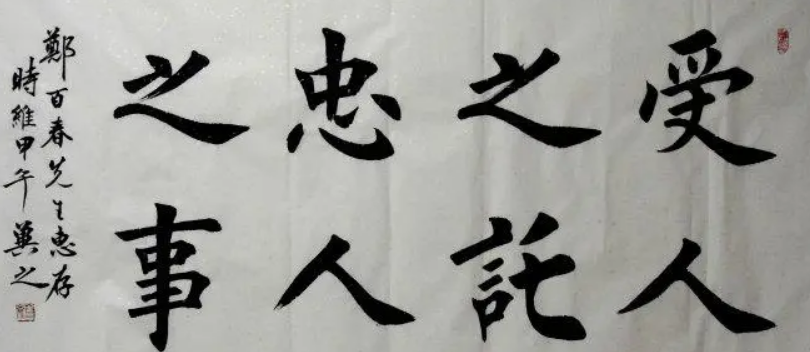 受人
之託
忠人
之事
鄭百春先生惠存
時維甲午